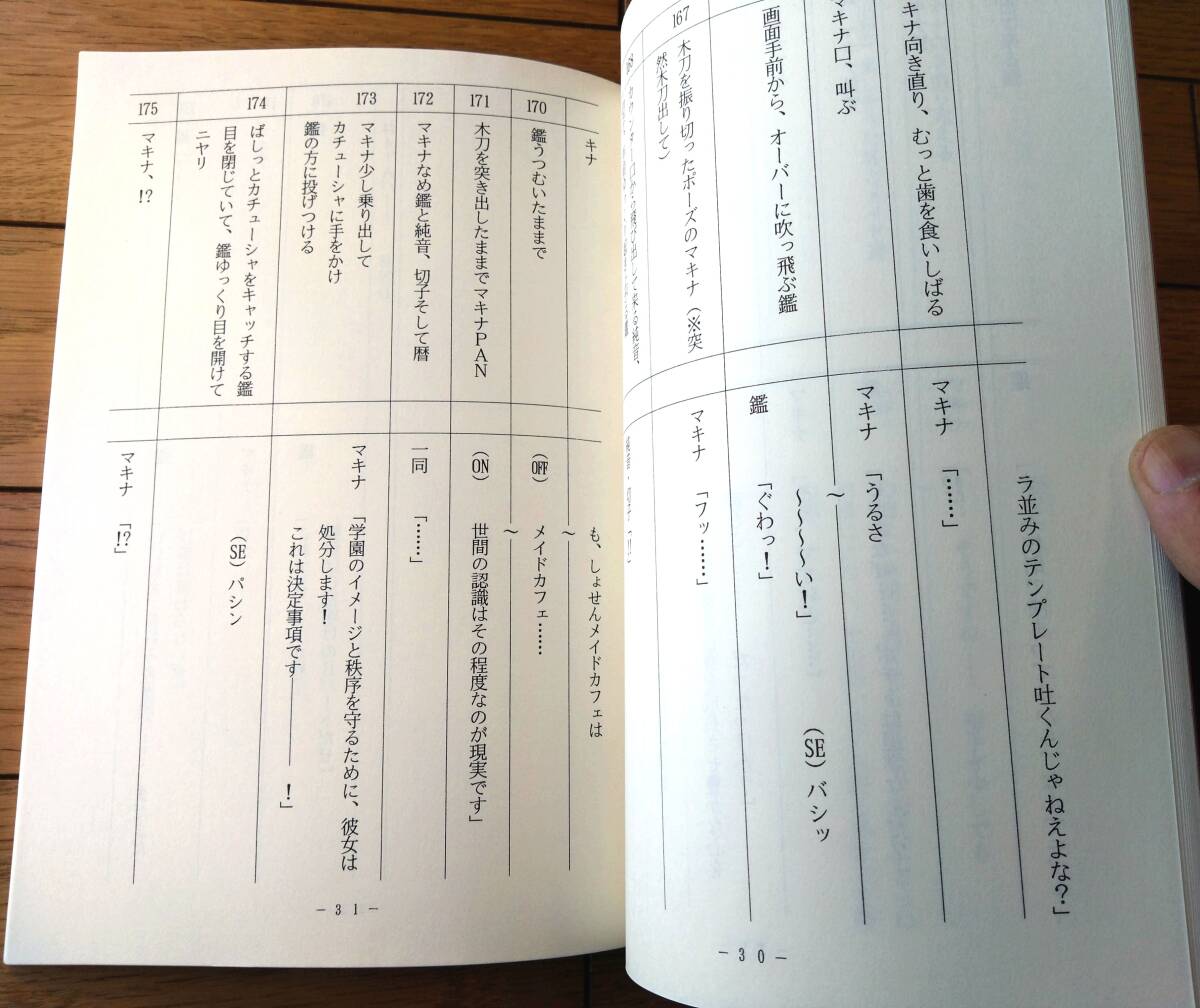 ラ並みのテンプレート吐くんじゃねえよな？」
キナ向き直り、むっと歯を食いしばる
マキナ 「……」
マキナ口、叫ぶ
マキナ 「うるさ
～
画面手前から、オーバーに吹っ飛ぶ鑑
～～～～い！」
(SE) バシッ
鑑 「ぐわっ！」
167
木刀を振り切ったポーズのマキナ（※突
然木刀出して）
マキナ 「フッ……」
- 30 -
キナ
も、しょせんメイドカフェは
～
170
鑑うつむいたままで
(OFF) メイドカフェ……
～
171
木刀を突き出したままでマキナPAN
(ON) 世間の認識はその程度なのが現実です」
172
マキナなめ鑑と純音、切子そして暦
一同 「……」
173
マキナ少し乗り出して
カチューシャに手をかけ
鑑の方に投げつける
マキナ 「学園のイメージと秩序を守るために、彼女は
処分します！
これは決定事項です――――！」
174
ばしっとカチューシャをキャッチする鑑
目を閉じていて、鑑ゆっくり目を開けて
ニヤリ
(SE) パシン
175
マキナ、!?
マキナ 「!?」
- 31 -